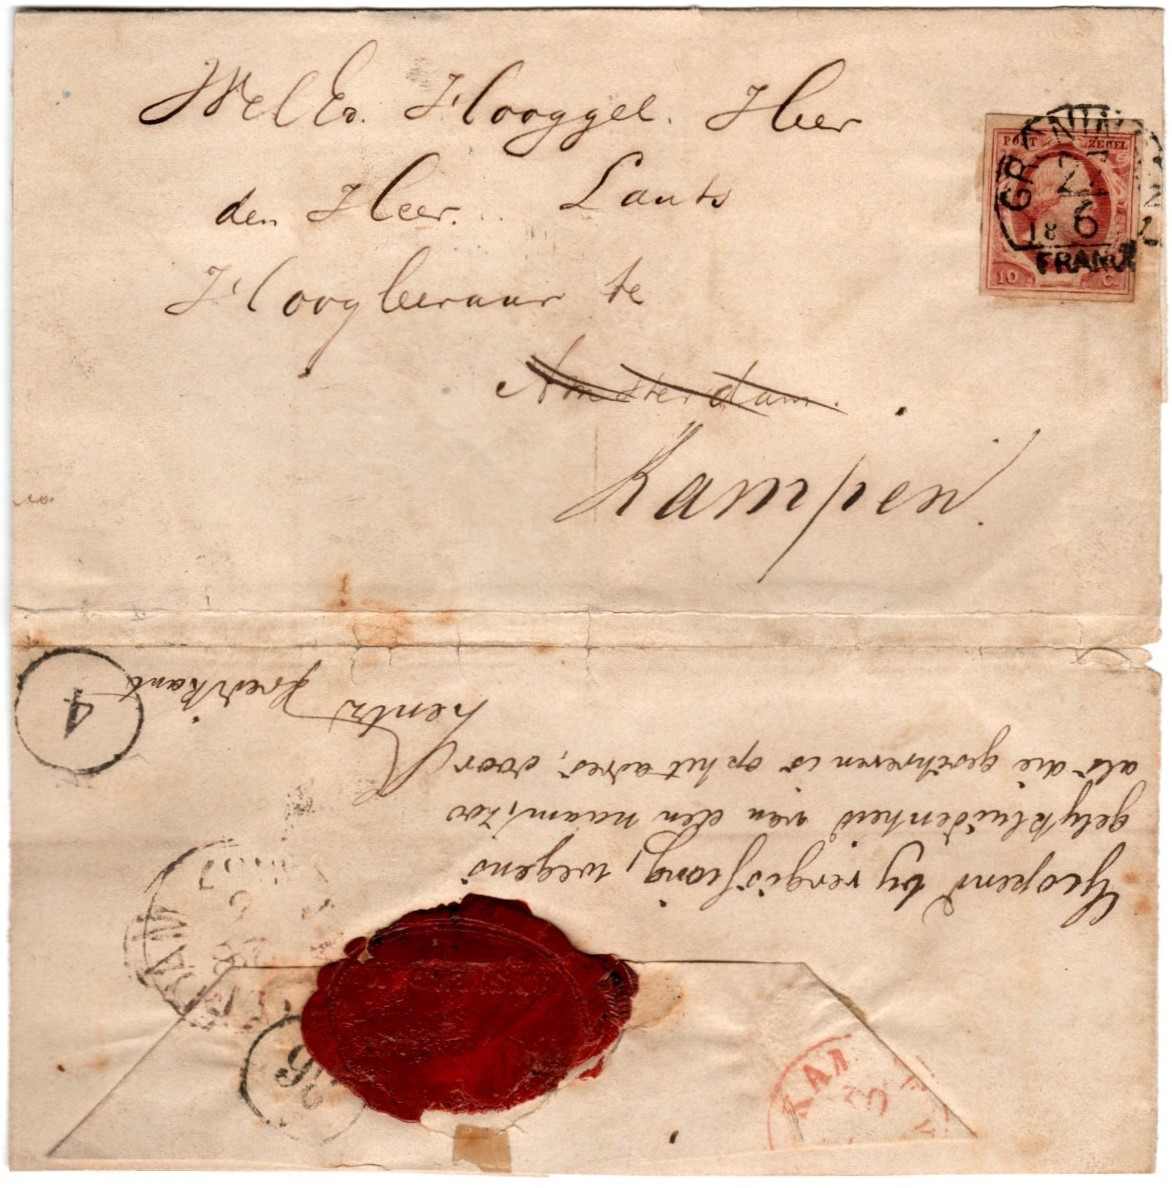 WelEd. Hooggel. Heer
den Heer.. Lauts
Hoogleeraar te
Amsterdam.
Kampen.
POST ZEGEL
GRONINGEN
6
18
FRANCO
10 C.
4
Geopend by vergissing, wegens
gelykluidenheid van den naam, zoo
als die geschreven is op het adres, door
Lentz
predikant
KAM
30